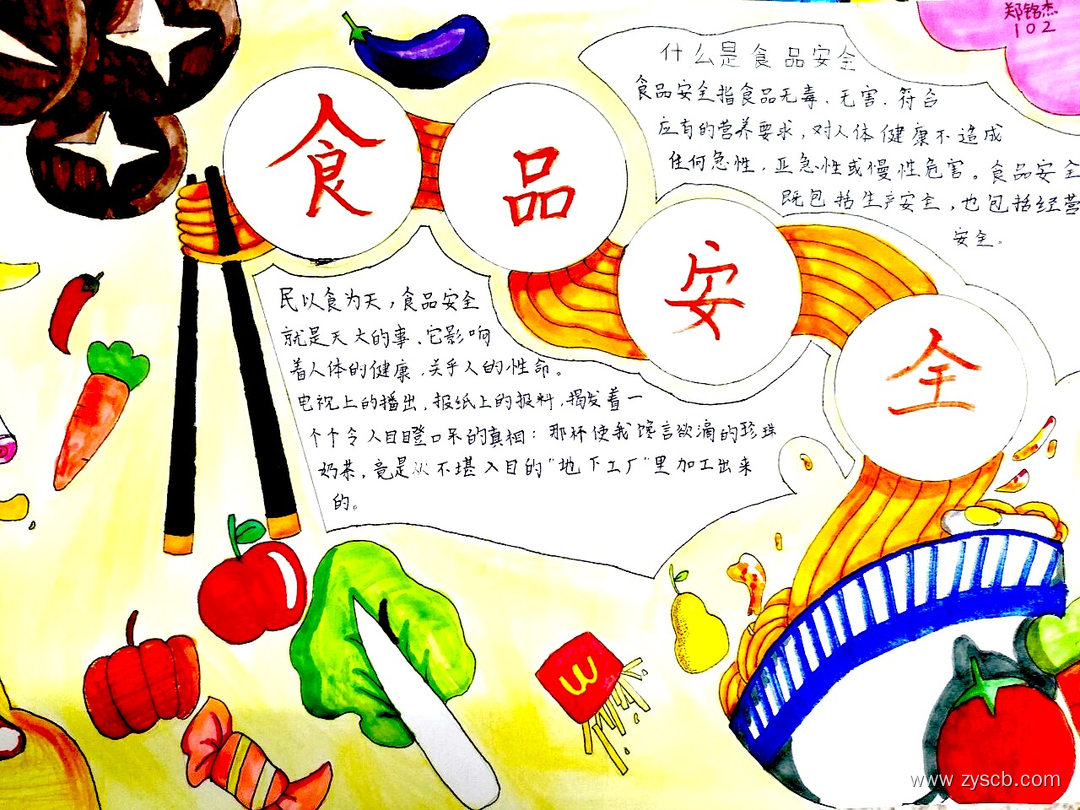 郑铭杰
102
食品安全
什么是食品安全
食品安全指食品无毒、无害、符合
应有的营养要求，对人体健康不造成
任何急性，亚急性或慢性危害。食品安全
既包括生产安全，也包括经营
安全。
民以食为天，食品安全
就是天大的事、它影响
着人体的健康，关乎人的性命。
电视上的播出，报纸上的报料，揭发着一
个个令人目瞪口呆的真相：那杯使我馋言欲滴的珍珠
奶茶，竟是从不堪入目的"地下工厂"里加工出来
的。
www.zyscb.com